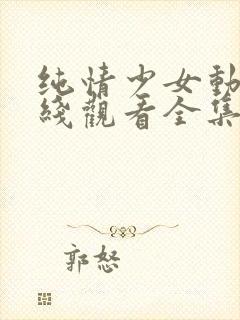 纯情少女動
綫觀看全集
郭怒